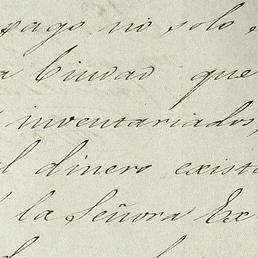 pago no solo
a Ciudad que
inventariados,
el dinero exist
la Señora Ex